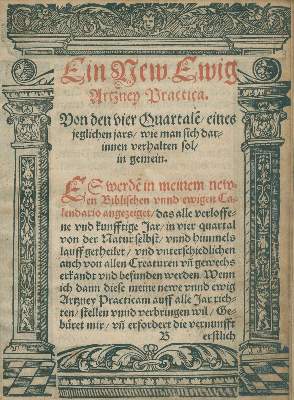 Ein New Ewig
Artzney Practica.
Von den vier Quartalē / eines
jeglichen jars / wie man sich dar-
innen verhalten sol /
in gemein.
ES werdē in meinem new-
en Biblischen vnnd ewigen Ca-
lendario angezeiget / das alle verloffe-
ne vnd kunfftige Jar / in vier quartal
von der Natur selbst / vnnd himmels
lauff getheilet / vnd vnterschiedlichen
auch von allen Creaturen vñ gewechs
erkandt vnd befunden werden. Wenn
ich dann diese meine newe vnnd ewig
Artzney Practicam auff alle Jar rich-
ten / stellen vnnd verbringen wil / Ge-
büret mir / vñ erfordert die vernunfft
B erstlich